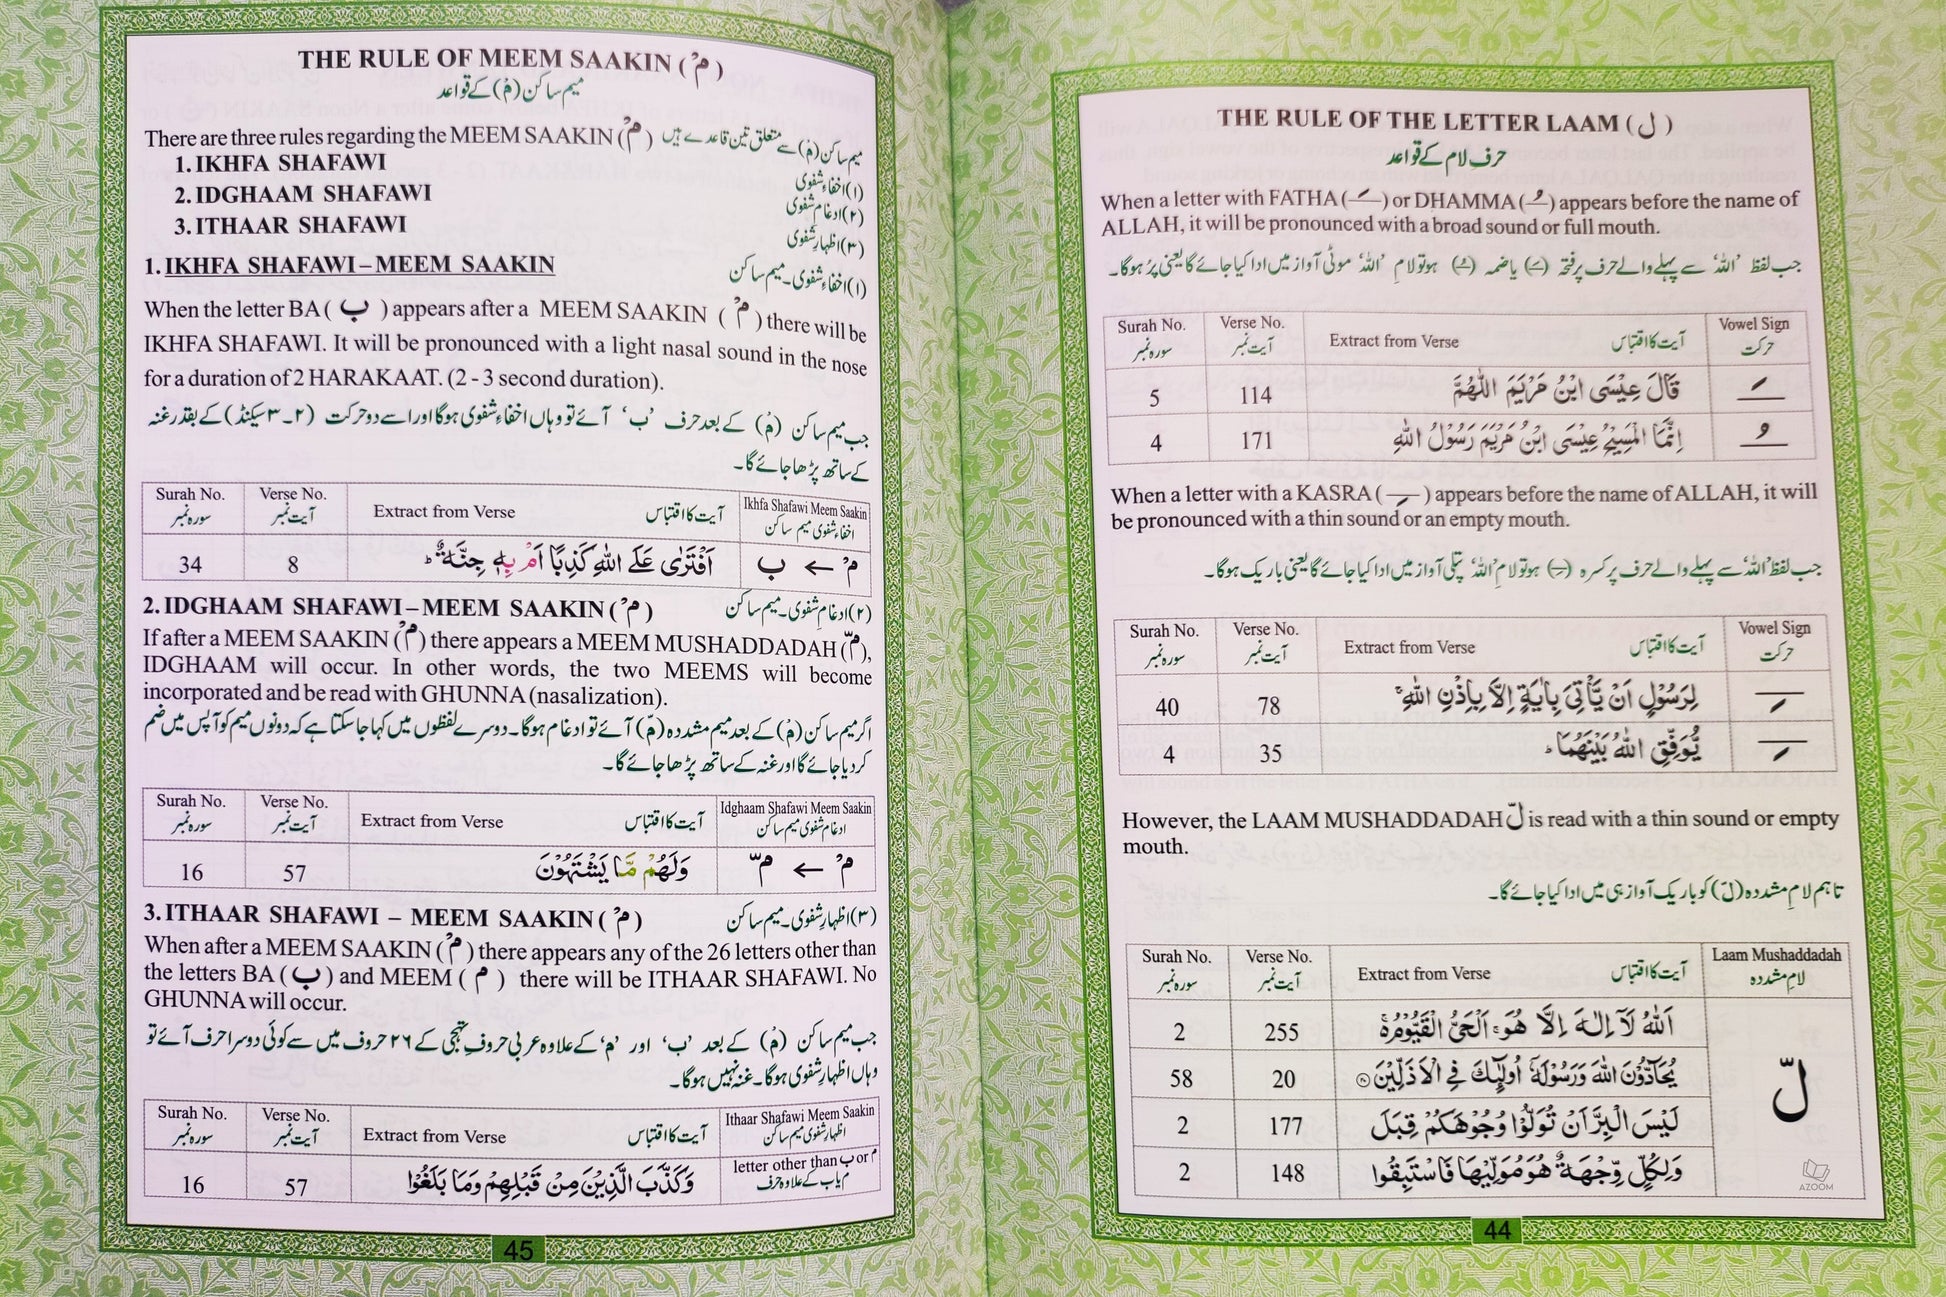 THE RULE OF THE LETTER LAAM ( ل )
حرف لام کے قواعد
When a letter with FATHA ( ـَ ) or DHAMMA ( ـُ ) appears before the name of
ALLAH, it will be pronounced with a broad sound or full mouth.
جب لفظ ’اللہ‘ سے پہلے والے حرف پر فتحہ (ـَ) یا ضمہ (ـُ) ہو تو لامِ ’اللہ‘ موٹی آواز میں ادا کیا جائے گا یعنی پُر ہوگا۔
Surah No. Verse No. Extract from Verse آیت کا اقتباس Vowel Sign
سورہ نمبر آیت نمبر حرکت
5 114 قَالَ عِيْسَى ابْنُ مَرْيَمَ اللّٰهُمَّ ـَ
4 171 اِنَّمَا الْمَسِيْحُ عِيْسَى ابْنُ مَرْيَمَ رَسُوْلُ اللّٰهِ ـُ
When a letter with a KASRA ( ـِ ) appears before the name of ALLAH, it will
be pronounced with a thin sound or an empty mouth.
جب لفظ ’اللہ‘ سے پہلے والے حرف پر کسرہ (ـِ) ہو تو لامِ ’اللہ‘ پتلی آواز میں ادا کیا جائے گا یعنی باریک ہوگا۔
Surah No. Verse No. Extract from Verse آیت کا اقتباس Vowel Sign
سورہ نمبر آیت نمبر حرکت
40 78 لِرَسُوْلٍ اَنْ يَّاْتِىَ بِاٰيَةٍ اِلَّا بِاِذْنِ اللّٰهِ ۚ ـِ
4 35 يُّوَفِّقِ اللّٰهُ بَيْنَهُمَا ؕ ـِ
However, the LAAM MUSHADDADAH لّ is read with a thin sound or empty
mouth.
تاہم لامِ مشددہ (لّ) کو باریک آواز ہی میں ادا کیا جائے گا۔
Surah No. Verse No. Extract from Verse آیت کا اقتباس Laam Mushaddadah
سورہ نمبر آیت نمبر لامِ مشددہ
2 255 اَللّٰهُ لَاۤ اِلٰهَ اِلَّا هُوَ ۚ اَلْحَىُّ الْقَيُّوْمُ ۚ
58 20 يُحَآدُّوْنَ اللّٰهَ وَرَسُوْلَهٗۤ اُولٰٓئِكَ فِى الْاَذَلِّيْنَ ۝۲۰
لّ
2 177 لَيْسَ الْبِرَّ اَنْ تُوَلُّوْا وُجُوْهَكُمْ قِبَلَ
2 148 وَلِكُلٍّ وِّجْهَةٌ هُوَ مُوَلِّيْهَا فَاسْتَبِقُوا
AZOOM
44
THE RULE OF MEEM SAAKIN ( مْ )
میم ساکن (مْ) کے قواعد
There are three rules regarding the MEEM SAAKIN ( مْ ) میم ساکن (مْ) سے متعلق تین قاعدے ہیں
1. IKHFA SHAFAWI (۱) اخفاءِ شفوی
2. IDGHAAM SHAFAWI (۲) ادغامِ شفوی
3. ITHAAR SHAFAWI (۳) اظہارِ شفوی
1. IKHFA SHAFAWI – MEEM SAAKIN (۱) اخفاءِ شفوی۔ میم ساکن
When the letter BA ( ب ) appears after a MEEM SAAKIN ( مْ ) there will be
IKHFA SHAFAWI. It will be pronounced with a light nasal sound in the nose
for a duration of 2 HARAKAAT. (2 - 3 second duration).
جب میم ساکن (مْ) کے بعد حرف ’ب‘ آئے تو وہاں اخفاءِ شفوی ہوگا اور اسے دو حرکت (۲۔۳ سیکنڈ) کے بقدر غنہ
کے ساتھ پڑھا جائے گا۔
Surah No. Verse No. Extract from Verse آیت کا اقتباس Ikhfa Shafawi Meem Saakin
سورہ نمبر آیت نمبر اخفاءِ شفوی میم ساکن
34 8 اَفْتَرٰى عَلَى اللّٰهِ كَذِبًا اَمْ بِهٖ جِنَّةٌ ؕ مْ ← ب
2. IDGHAAM SHAFAWI – MEEM SAAKIN ( مْ ) (۲) ادغامِ شفوی۔ میم ساکن
If after a MEEM SAAKIN ( مْ ) there appears a MEEM MUSHADDADAH ( مّ ),
IDGHAAM will occur. In other words, the two MEEMS will become
incorporated and be read with GHUNNA (nasalization).
اگر میم ساکن (مْ) کے بعد میم مشددہ (مّ) آئے تو ادغام ہوگا۔ دوسرے لفظوں میں کہا جاسکتا ہے کہ دونوں میم کو آپس میں ضم
کر دیا جائے گا اور غنہ کے ساتھ پڑھا جائے گا۔
Surah No. Verse No. Extract from Verse آیت کا اقتباس Idghaam Shafawi Meem Saakin
سورہ نمبر آیت نمبر ادغامِ شفوی میم ساکن
16 57 وَلَهُمْ مَّا يَشْتَهُوْنَ مْ ← مّ
3. ITHAAR SHAFAWI – MEEM SAAKIN ( مْ ) (۳) اظہارِ شفوی۔ میم ساکن
When after a MEEM SAAKIN ( مْ ) there appears any of the 26 letters other than
the letters BA ( ب ) and MEEM ( م ) there will be ITHAAR SHAFAWI. No
GHUNNA will occur.
جب میم ساکن (مْ) کے بعد ’ب‘ اور ’م‘ کے علاوہ عربی حروفِ تہجی کے ۲۶ حروف میں سے کوئی دوسرا حرف آئے تو
وہاں اظہارِ شفوی ہوگا۔ غنہ نہیں ہوگا۔
Surah No. Verse No. Extract from Verse آیت کا اقتباس Ithaar Shafawi Meem Saakin
سورہ نمبر آیت نمبر اظہارِ شفوی میم ساکن
16 57 وَكَذَّبَ الَّذِيْنَ مِنْ قَبْلِهِمْ وَمَا بَلَغُوْا letter other than ب or م
م یا ب کے علاوہ حرف
45